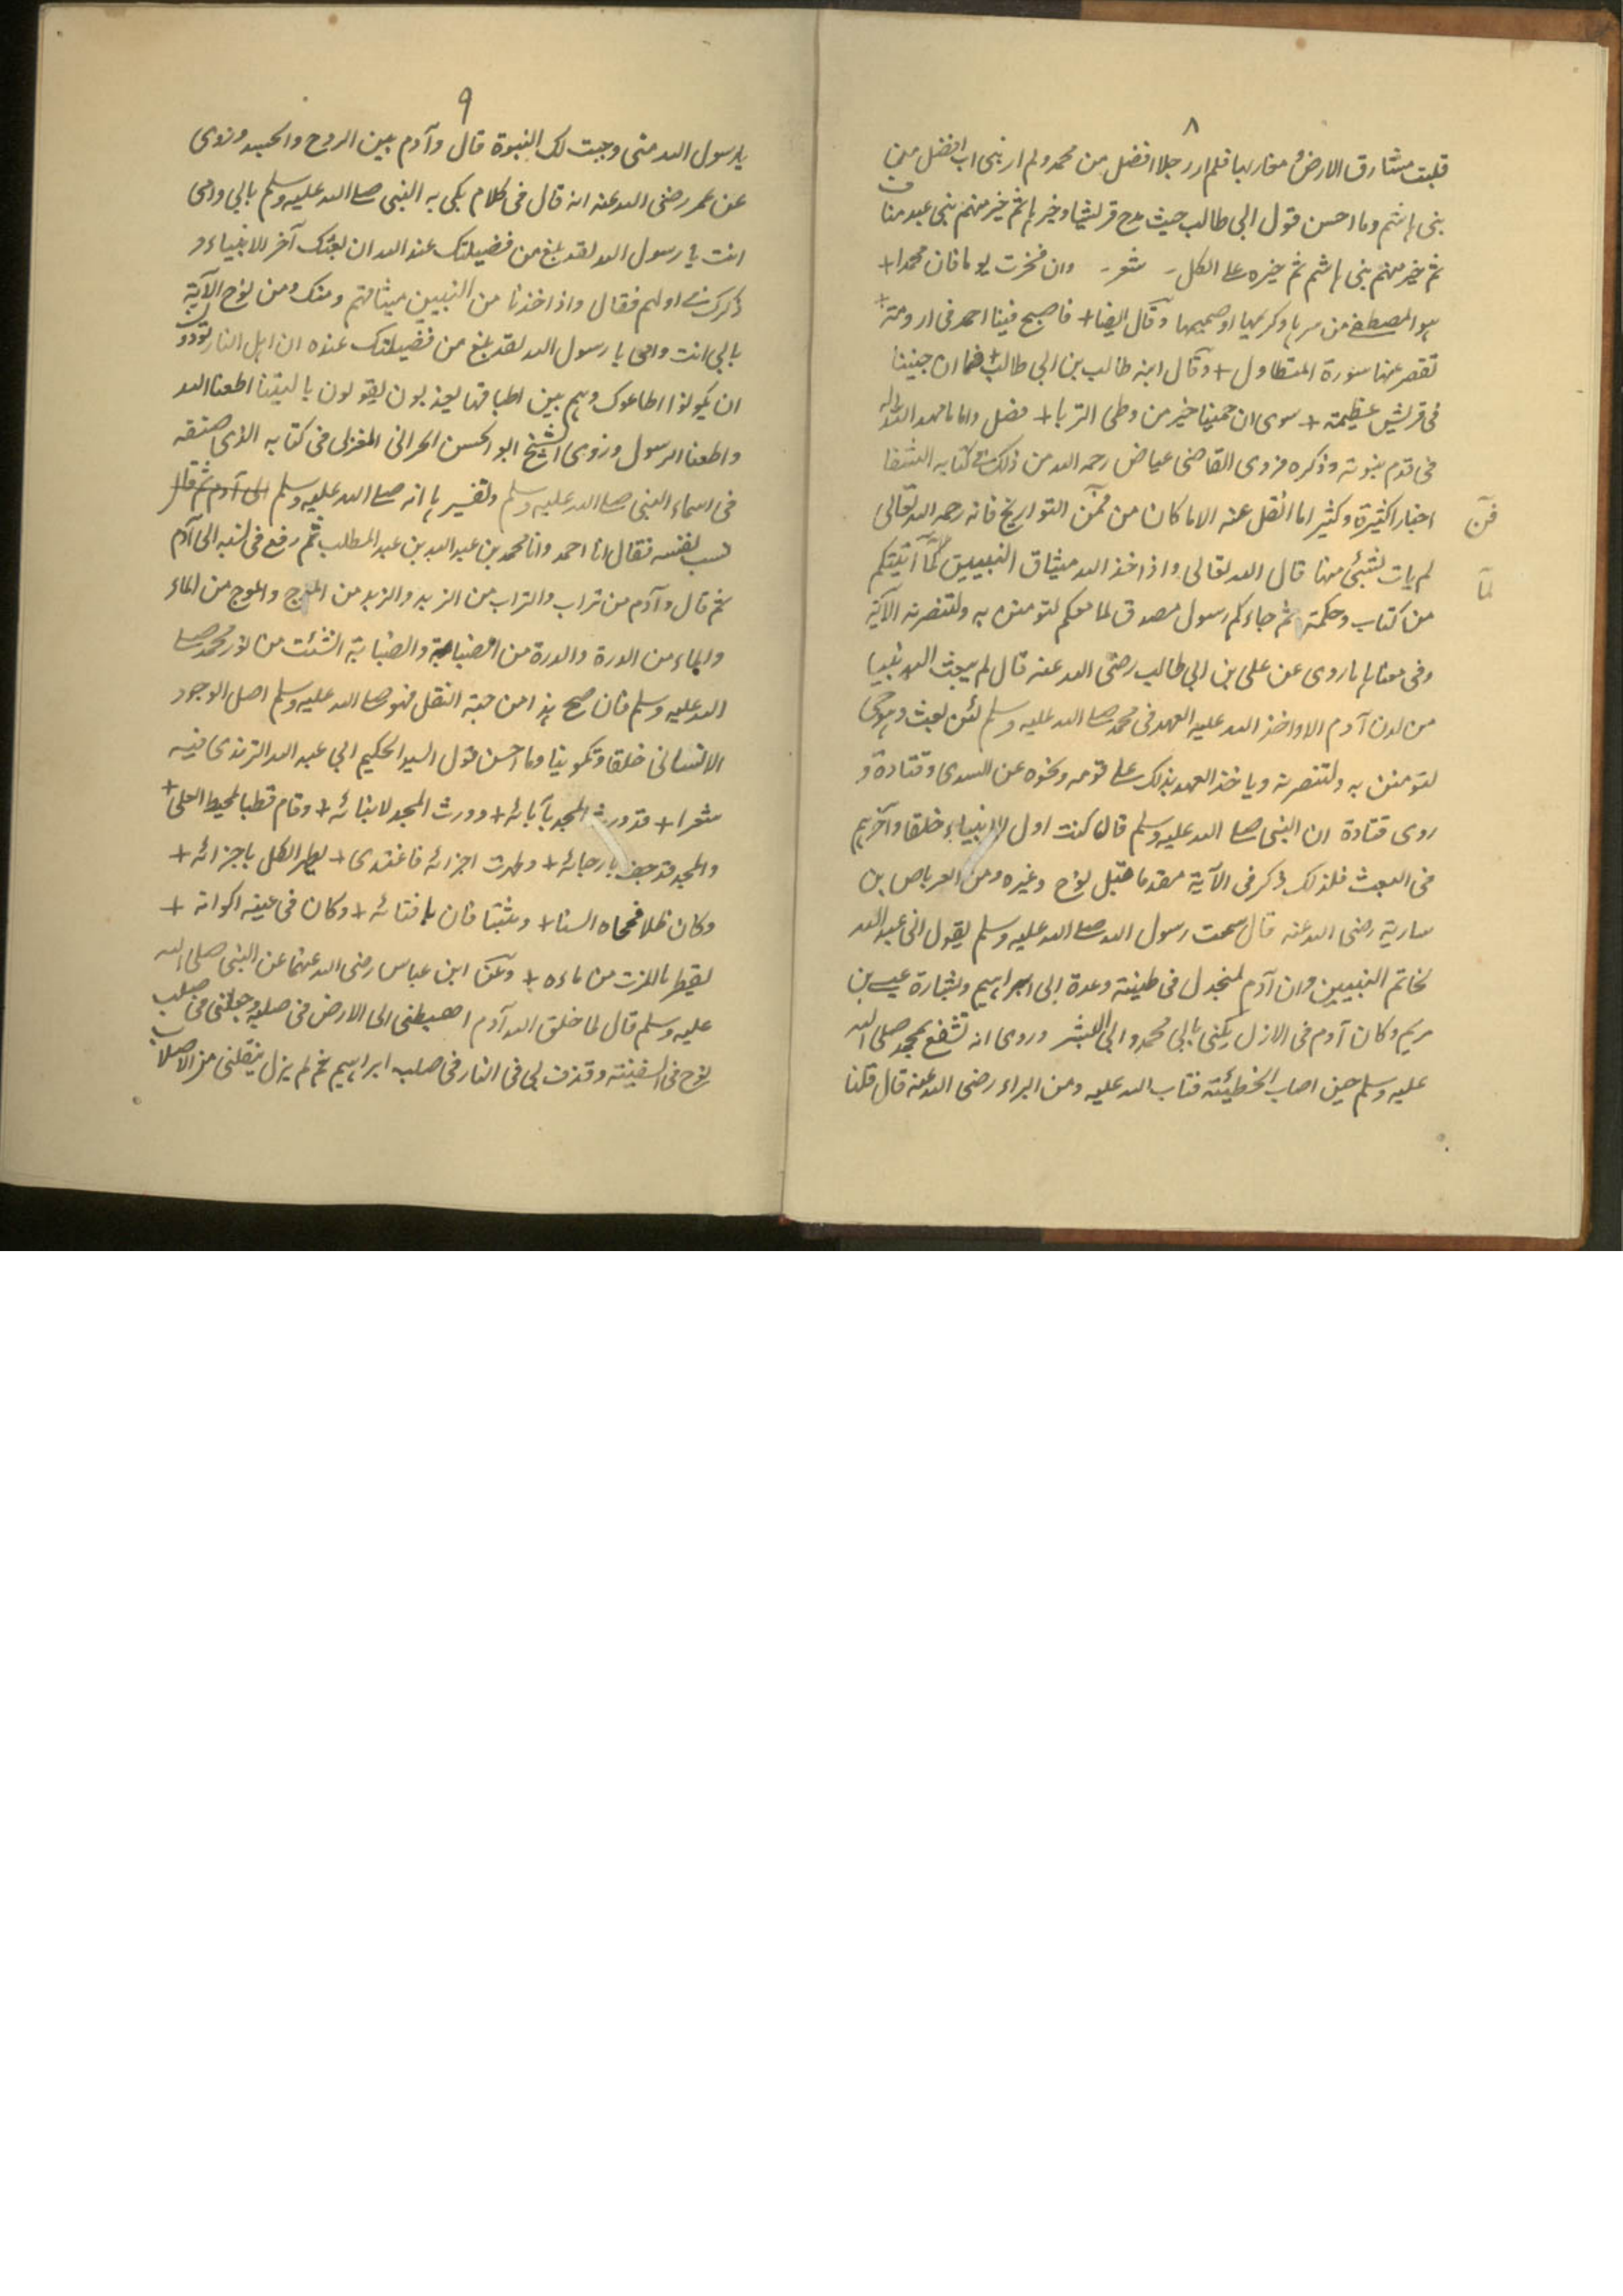 ٨
قلبت مشارق الارض و مغاربها فلم ار رجلا افضل من محمد ولم ار بنی اب افضل من
بنی هاشم وما احسن قول ابی طالب حیث مدح قریشا وخیرها ثم خیر منهم بنی عبد مناف
ثم خیر منهم بنی هاشم ثم خیره علی الکل - شعر - وان فخرت یوما فان محمدا +
هو المصطفی من سرها وکریمها او صمیمها وقال ایضا + فاصبح فینا احمد فی ارومة +
تقصر عنها سورة المتطاول + وقال ابنه طالب بن ابی طالب + فما ان جنینا
فی قریش عظیمة + سوی ان حمینا خیر من وطی التربا + فصل واما ما مهد الله له
فی قدم نبوته وذکره فروی القاضی عیاض رحمه الله من ذلک فی کتابه الشفا
اخبار اکثیرة وکثیر اما انقل عنه الا ما کان من فن التواریخ فانه رحمه الله تعالی
فن
لم یات بشیئ منها قال الله تعالی واذ اخذ الله میثاق النبیین لما آتیتکم
لما
من کتاب وحکمة ثم جاءکم رسول مصدق لما معکم لتومنن به ولتنصرنه الآیة
وفی معناها ما روی عن علی بن ابی طالب رضی الله عنه قال لم یبعث الله نبیا
من لدن آدم الا واخذ الله علیه العهد فی محمد صلی الله علیه وسلم لئن بعث وهو حی
لتومنن به ولتنصرنه ویاخذ العهد بذلک علی قومه ونحوه عن السدی وقتادة و
روی قتادة ان النبی صلی الله علیه وسلم قال کنت اول الانبیاء خلقا وآخرهم
فی البعث فلذلک ذکر فی الآیة مقدما قبل نوح وغیره ومن العرباض بن
ساریة رضی الله عنه قال سمعت رسول الله صلی الله علیه وسلم یقول انی عبد الله
لخاتم النبیین وان آدم لمنجدل فی طینته وعدة ابی ابراهیم وبشارة عیسی بن
مریم وکان آدم فی الازل یکنی بابی محمد وابی البشر وروی انه تشفع بمحمد صلی الله
علیه وسلم حین اصاب الخطیئة فتاب الله علیه ومن البراء رضی الله عنه قال قلنا
٩
یا رسول الله متی وجبت لک النبوة قال وآدم بین الروح والجسد وروی
عن عمر رضی الله عنه انه قال فی کلام بکی به النبی صلی الله علیه وسلم بابی وامی
انت یا رسول الله لقد بلغ من فضیلتک عند الله ان بعثک آخر الانبیاء و
ذکرک فی اولهم فقال واذ اخذنا من النبیین میثاقهم ومنک ومن نوح الآیة
بابی انت وامی یا رسول الله لقد بلغ من فضیلتک عنده ان اهل النار یودون
ان یکونوا اطاعوک وهم بین اطباقها یعذبون یقولون یا لیتنا اطعنا الله
واطعنا الرسول وروی الشیخ ابو الحسن الحرانی المغزلی فی کتابه الذی صنفه
فی اسماء النبی صلی الله علیه وسلم وتفسیرها انه صلی الله علیه وسلم الی آدم ثم قال
نسب نفسه فقال انا احمد وانا محمد بن عبد الله بن عبد المطلب ثم رفع فی نسبه الی آدم
ثم قال وآدم من تراب والتراب من الزبد والزبد من الموج والموج من الماء
والماء من الدرة والدرة من الضبابة والضبابة انشئت من نور محمد صلی
الله علیه وسلم فان صح هذا من جهة النقل فهو صلی الله علیه وسلم اصل الوجود
الانسانی خلقا وتکوینا وما احسن قول السید الحکیم ابی عبد الله الترمذی فیه
شعرا + قد ورث المجد بآبائه + وورث المجد لابنائه + وقام قطبا لمحیط العلی +
والمجد قد حف بارجائه + وطهرت اجزائه فاغتدی + یطهر الکل باجزائه +
وکان ظلا فمحاه السنا + ومثبتا فان بافنائه + وکان فی عینه اکوانه +
یقطر باللزت من ماءه + وعن ابن عباس رضی الله عنهما عن النبی صلی الله
علیه وسلم قال لما خلق الله آدم اهبطنی الی الارض فی صلبه وجعلنی فی صلب
نوح فی السفینة وقذف بی فی النار فی صلب ابراهیم ثم لم یزل ینقلنی من الاصلاب